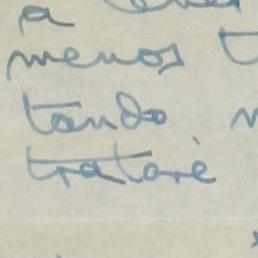 a
menos
tando
trataré